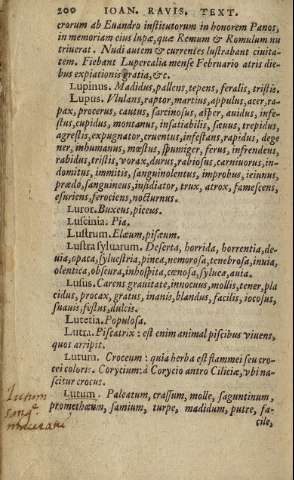 200 IOAN. RAVIS. TEXT.
crorum ab Euandro institutorum in honorem Panos,
in memoriam eius lupæ, quæ Remum & Romulum nu
triuerat. Nudi autem & currentes lustrabant ciuita
tem. Fiebant Lupercalia mense Februario atris die-
bus expiationis gratia, &c.
Lupinus. Madidus, pallens, tepens, feralis, tristis.
Lupus. Vlulans, raptor, martius, appulus, acer, ra-
pax, procerus, cautus, farcinosus, asper, auidus, infe-
stus, cupidus, montanus, insatiabilis, sæuus, trepidus,
agrestis, expugnator, cruentus, infestans, rapidus, dege
ner, inhumanus, mœstus, spumiger, ferus, infrendens,
rabidus, tristis, vorax, durus, rabiosus, carniuorus, in-
domitus, immitis, sanguinolentus, improbus, ieiunus,
prædo, sanguineus, insidiator, trux, atrox, famescens,
esuriens, ferociens, nocturnus.
Luror. Buxeus, piceus.
Luscinia. Pia.
Lustrum. Elæum, pisæum.
Lustra syluarum. Deserta, horrida, horrentia, de-
uia, opaca, syluestria, pinea, nemorosa, tenebrosa, inuia,
olentica, obscura, inhospita, cœnosa, syluea, auia.
Lusus. Carens grauitate, innocuus, mollis, tener, pla
cidus, procax, gratus, inanis, blandus, facilis, iocosus,
suauis, fustus, dulcis.
Lutetia. Populosa.
Lutra. Piscatrix: est enim animal piscibus viuens,
quos arripit.
Lutum. Croceum: quia herba est flammei seu cro-
cei coloris. Corycium: à Corycio antro Ciliciæ, vbi na-
scitur crocus.
Lutum. Paleatum, crassum, molle, saguntinum,
prometheum, samium, turpe, madidum, putre, fa-
cile,
Lutum